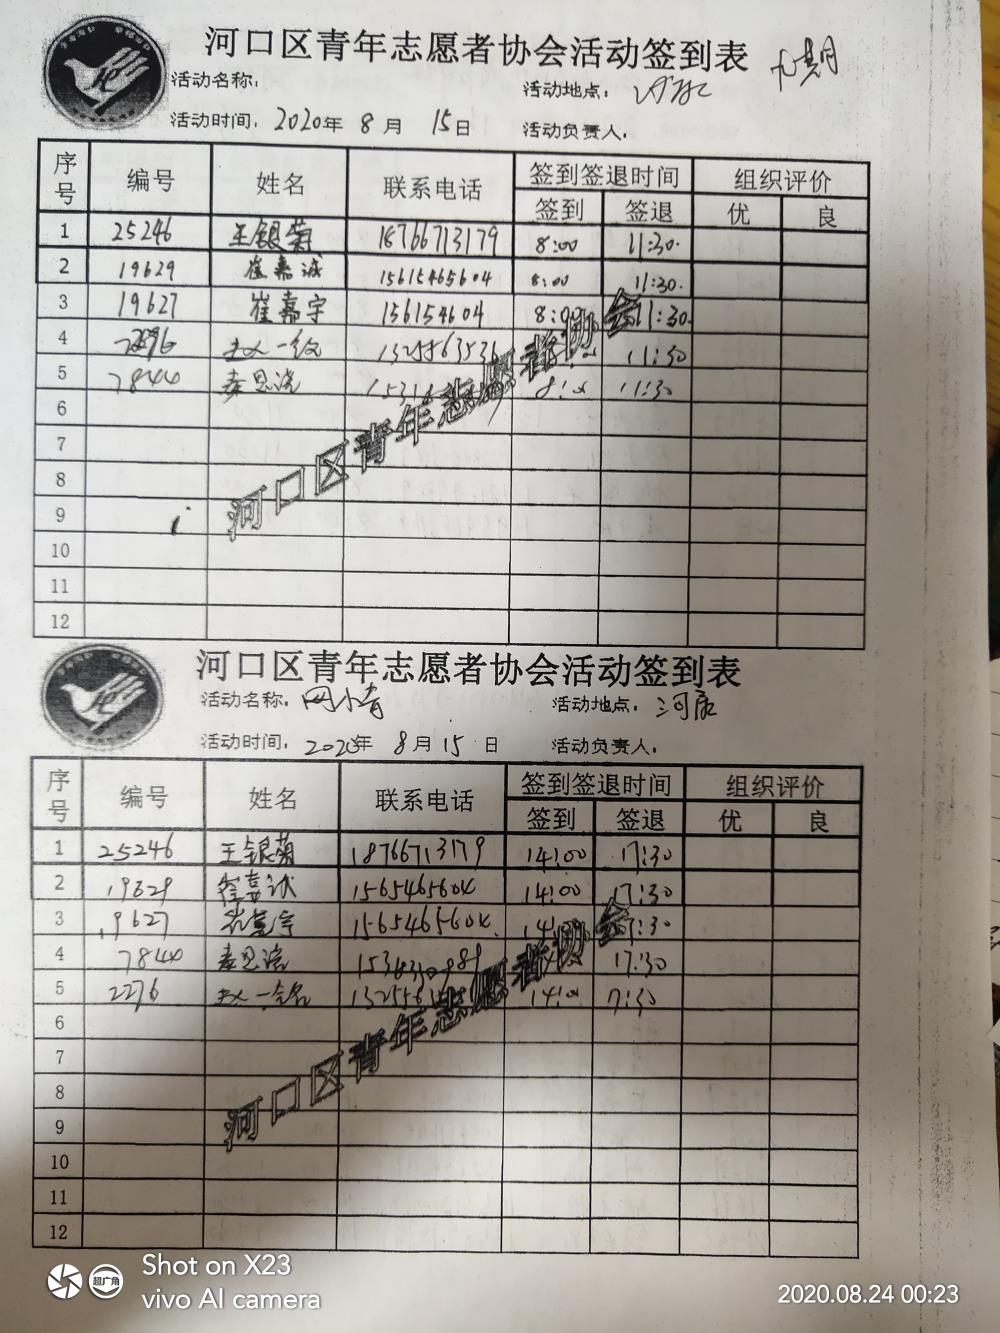 河口区青年志愿者协会活动签到表
活动名称：
活动地点：
活动时间：2020年 8月 15日 活动负责人：
序号 编号 姓名 联系电话 签到签退时间 组织评价
签到 签退 优 良
1 25246 王银菊 18766713179 8:00 11:30
2 19629 崔嘉诚 15615465604 8:00 11:30
3 19627 崔嘉宇 156154604 8:00 11:30
4 11:30
5 7844 秦思涵 11:30
6
7
8
9
10
11
12
河口区青年志愿者协会
河口区青年志愿者协会活动签到表
活动名称： 活动地点：河康
活动时间：2020年 8月15日 活动负责人：
序号 编号 姓名 联系电话 签到签退时间 组织评价
签到 签退 优 良
1 25246 王银菊 18766713179 14:00 17:30
2 19629 崔嘉诚 1565465604 14:00 17:30
3 19627 崔嘉宇 1565465604 17:30
4 7844 秦思涵 17:30
5 2276 17:30
6
7
8
9
10
11
12
河口区青年志愿者协会
超广角
Shot on X23
vivo AI camera
2020.08.24 00:23